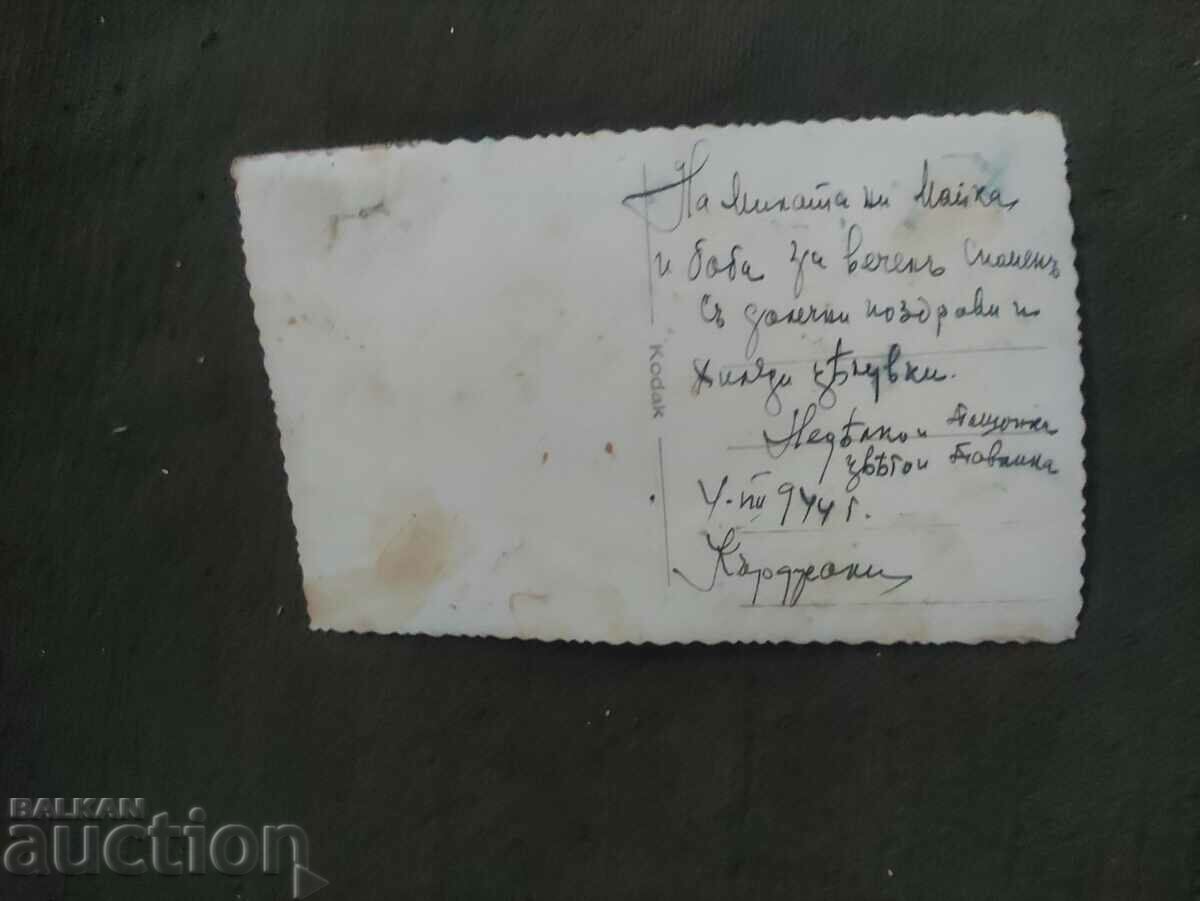 На милата ни Майка
и баба за веченъ споменъ
съ далечни поздрави и
хиляди цѣлувки.
Недѣлко и
Цвѣто и
4.-III 944 г.
Кърджали
Kodak
BALKAN
auction